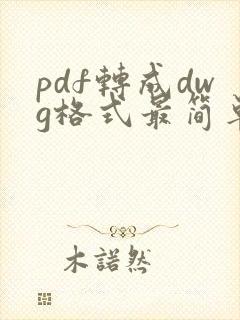 pdf轉成dw
g格式最简單
木諾然